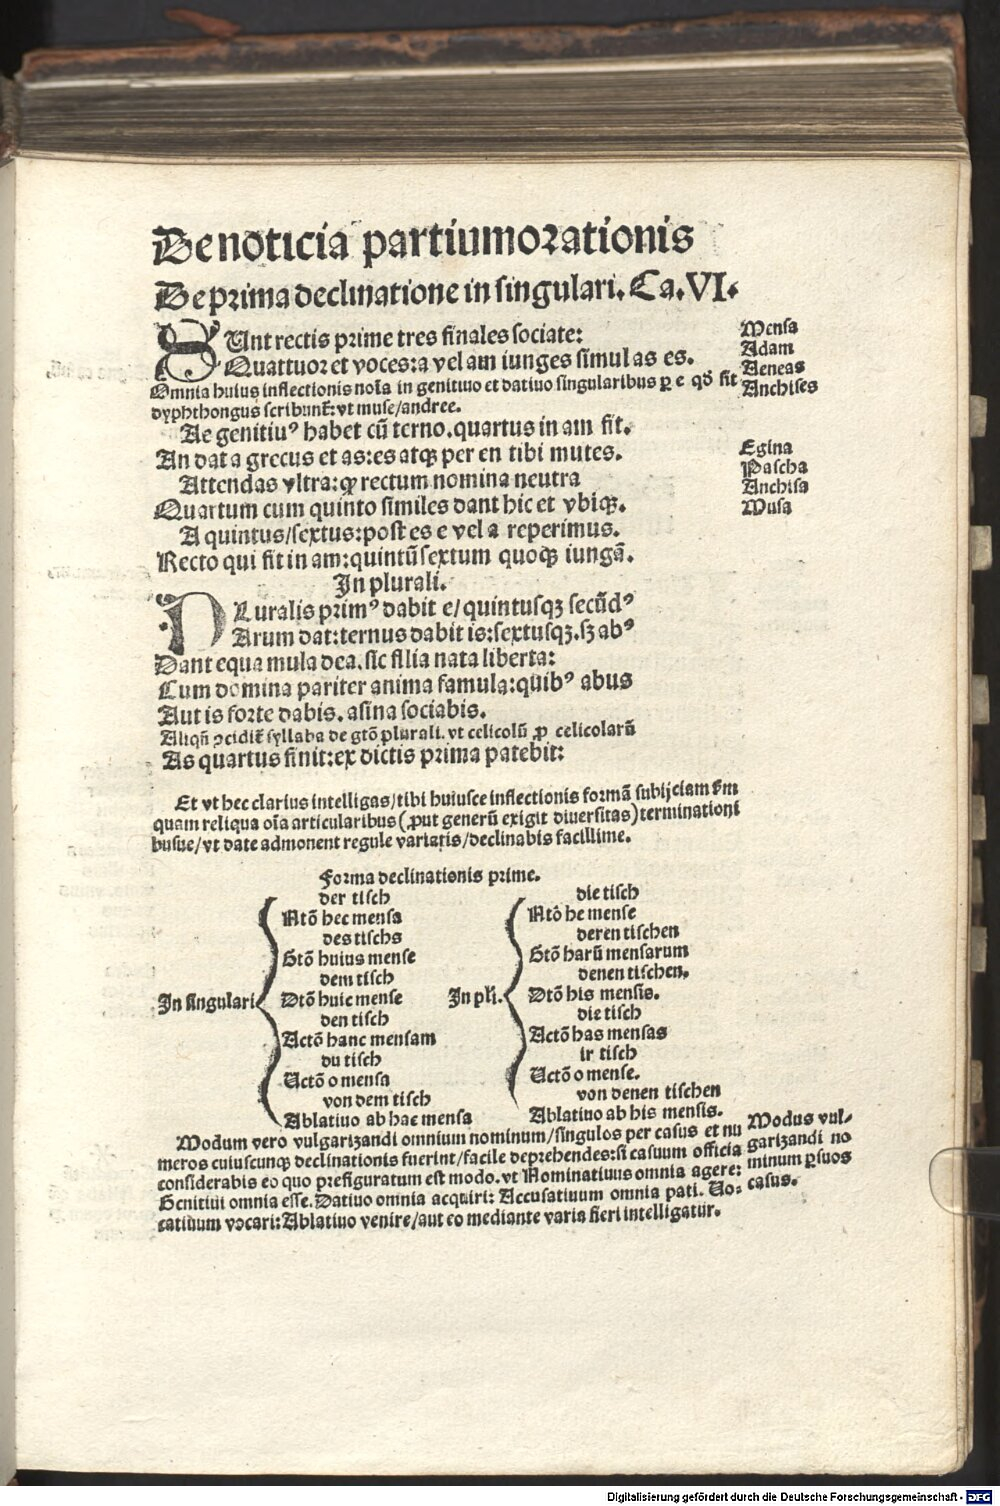 De noticia partium orationis
De prima declinatione in singulari. Ca. VI.
SUnt rectis prime tres finales sociate:
Quattuor et voces: a vel am iunges simul as es.
Omnia huius inflectionis noīa in genitiuo et datiuo singularibus ꝑ e qđ fit
dyphthongus scribunt̄: vt muse/andree.
Ae genitiuꝰ habet cū terno. quartus in am fit.
An dat a grecus et as: es atqꝫ per en tibi mutes.
Attendas vltra: ꝙ rectum nomina neutra
Quartum cum quinto similes dant hic et vbiqꝫ.
A quintus/sextus: post es e vel a reperimus.
Recto qui fit in am: quintū sextum quoqꝫ iungā.
Mensa
Adam
Aeneas
Anchises
Egina
Pascha
Anchisa
Musa
In plurali.
PLuralis primꝰ dabit e/quintusqꝫ secūdꝰ
Arum dat: ternus dabit is: sextusqꝫ. sꝫ abꝰ
Dant equa mula dea. sic filia nata liberta:
Cum domina pariter anima famula: quibꝰ abus
Aut is forte dabis. asina sociabis.
Aliqñ ꝯcidit̄ syllaba de gtō plurali. vt celicolū ꝓ celicolarū
As quartus finit: ex dictis prima patebit:
Et vt hec clarius intelligas/tibi huiusce inflectionis formā subijciam ẜm
quam reliqua oīa articularibus (ꝓut generū exigit diuersitas) terminationi
busue/vt date admonent regule variatis/declinabis facillime.
Forma declinationis prime.
In singulari
der tisch
Ntō hec mensa
des tischs
Gtō huius mense
dem tisch
Dtō huic mense
den tisch
Actō hanc mensam
du tisch
Uctō o mensa
von dem tisch
Ablatiuo ab hac mensa
In pli.
die tisch
Ntō he mense
deren tischen
Gtō harū mensarum
denen tischen.
Dtō his mensis.
die tisch
Actō has mensas
ir tisch
Uctō o mense.
von denen tischen
Ablatiuo ab his mensis.
Modum vero vulgarizandi omnium nominum/singulos per casus et nu
meros cuiuscunqꝫ declinationis fuerint/facile deprehendes: si casuum officia
considerabis eo quo prefiguratum est modo. vt Nominatiuus omnia agere:
Genitiui omnia esse. Datiuo omnia acquiri: Accusatiuum omnia pati. Uo-
catiuum vocari: Ablatiuo venire/aut eo mediante varia fieri intelligatur.
Modus vul-
garizandi no
minum ꝑ suos
casus.
Digitalisierung gefördert durch die Deutsche Forschungsgemeinschaft - DFG